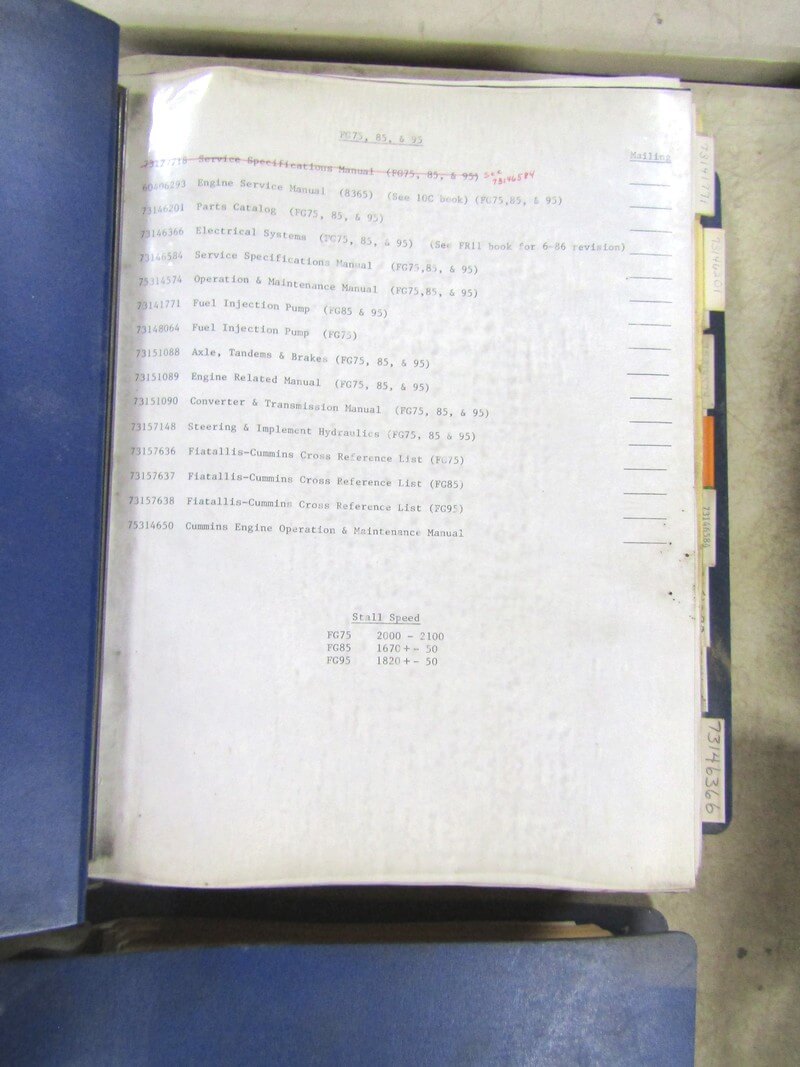 FG75, 85, & 95
Mailing
Service Specifications Manual (FG75, 85, & 95) see 73146584
60406293 Engine Service Manual (8365) (See 10C book) (FG75,85, & 95)
73146201 Parts Catalog (FG75, 85, & 95)
73146366 Electrical Systems (FG75, 85, & 95) (See FR11 book for 6-86 revision)
73146584 Service Specifications Manual (FG75,85, & 95)
75314574 Operation & Maintenance Manual (FG75,85, & 95)
73141771 Fuel Injection Pump (FG85 & 95)
73148064 Fuel Injection Pump (FG75)
73151088 Axle, Tandems & Brakes (FG75, 85, & 95)
73151089 Engine Related Manual (FG75, 85, & 95)
73151090 Converter & Transmission Manual (FG75, 85, & 95)
73157148 Steering & Implement Hydraulics (FG75, 85 & 95)
73157636 Fiatallis-Cummins Cross Reference List (FG75)
73157637 Fiatallis-Cummins Cross Reference List (FG85)
73157638 Fiatallis-Cummins Cross Reference List (FG95)
75314650 Cummins Engine Operation & Maintenance Manual
Stall Speed
FG75 2000 - 2100
FG85 1670 +- 50
FG95 1820 +- 50
73141771
73146201
73146584
73146366